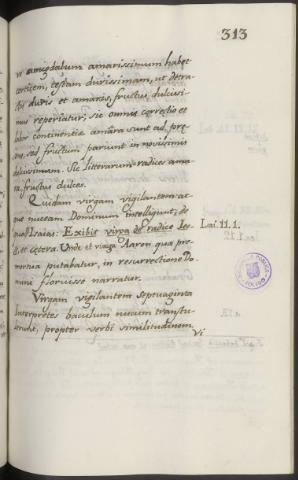 313
ut amigdalum amarissimum habet
corticem, testam durissimam, ut detra-
ctis duris et amaris, fructus dulcissi-
mus reperitur; sic omnis correctio et
labor continentiæ amara sunt ad præ-
sens, sed fructum pariunt in novissimis
dulcissimum. Sic litterarum radices ama-
ræ, fructus dulces.
Quidam virgam vigilantem ac
nuceam Dominum intelligunt, de
quo Isaias: Exibit virga de radice Jes-
se, et cetera. Unde et virga Aaron, quæ pre-
mortua putabatur, in resurrectione Do-
mini floruisse narratur.
Isai. 11. 1.
Virgam vigilantem septuaginta
Interpretes baculum nuceum transtu-
lerunt, propter verbi similitudinem.
Vi